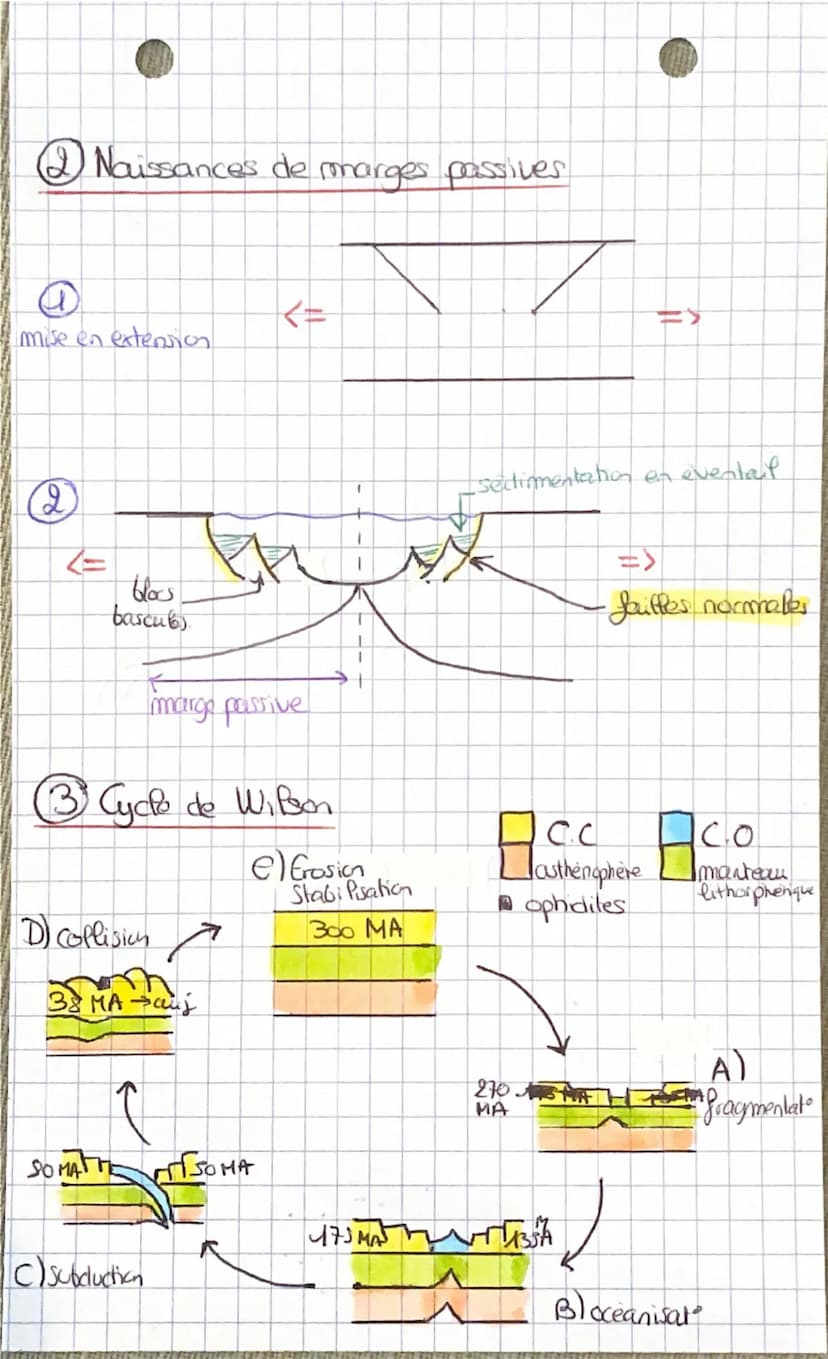 ② Naissances de marges passives
①
mise en extension
<=
=>
②
sédimentation en éventail
<=
=>
blocs
basculés
failles normales
marge passive
③ Cycle de Wilson
C.C
C.O
asthénosphère
manteau
lithosphérique
ophiolites
E) Erosion
Stabilisation
300 MA
D) collision
38 MA → auj
A)
270
MA
fragmentat°
50 MA
C) subduction
175 MA
135 MA
B) océanisat°